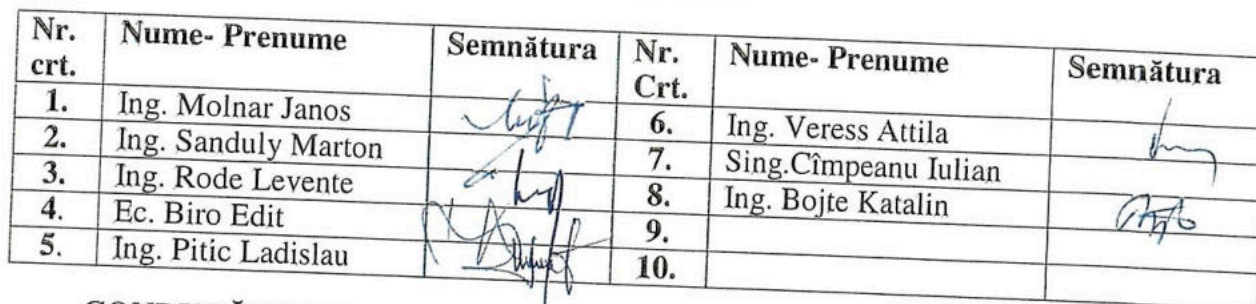 Nr. crt. Nume- Prenume Semnătura Nr. Crt. Nume- Prenume Semnătura
1. Ing. Molnar Janos 6. Ing. Veress Attila
2. Ing. Sanduly Marton 7. Sing.Cîmpeanu Iulian
3. Ing. Rode Levente 8. Ing. Bojte Katalin
4. Ec. Biro Edit 9.
5. Ing. Pitic Ladislau 10.